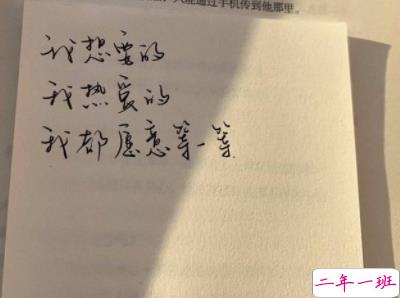 只能通过手机传到他那里。
我想要的
我热爱的
我都愿意等一等
二年一班